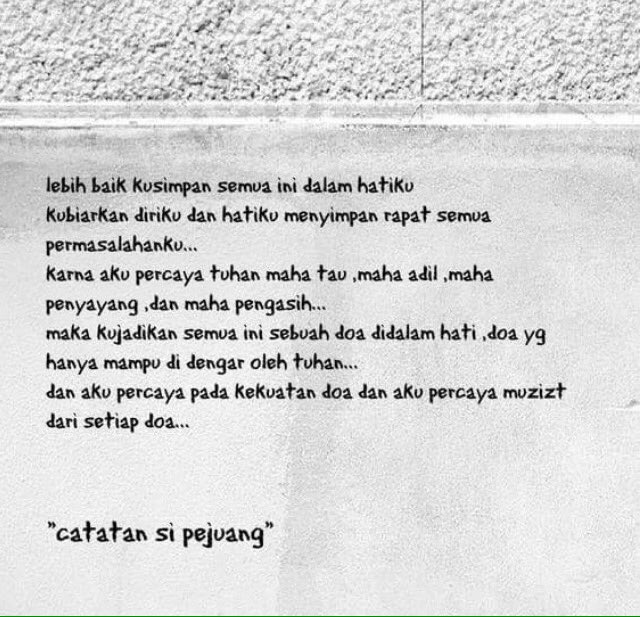 lebih baik kusimpan semua ini dalam hatiku
kubiarkan diriku dan hatiku menyimpan rapat semua
permasalahanku...
karna aku percaya tuhan maha tau ,maha adil ,maha
penyayang ,dan maha pengasih...
maka kujadikan semua ini sebuah doa didalam hati ,doa yg
hanya mampu di dengar oleh tuhan...
dan aku percaya pada kekuatan doa dan aku percaya muzizt
dari setiap doa...
"catatan si pejuang"